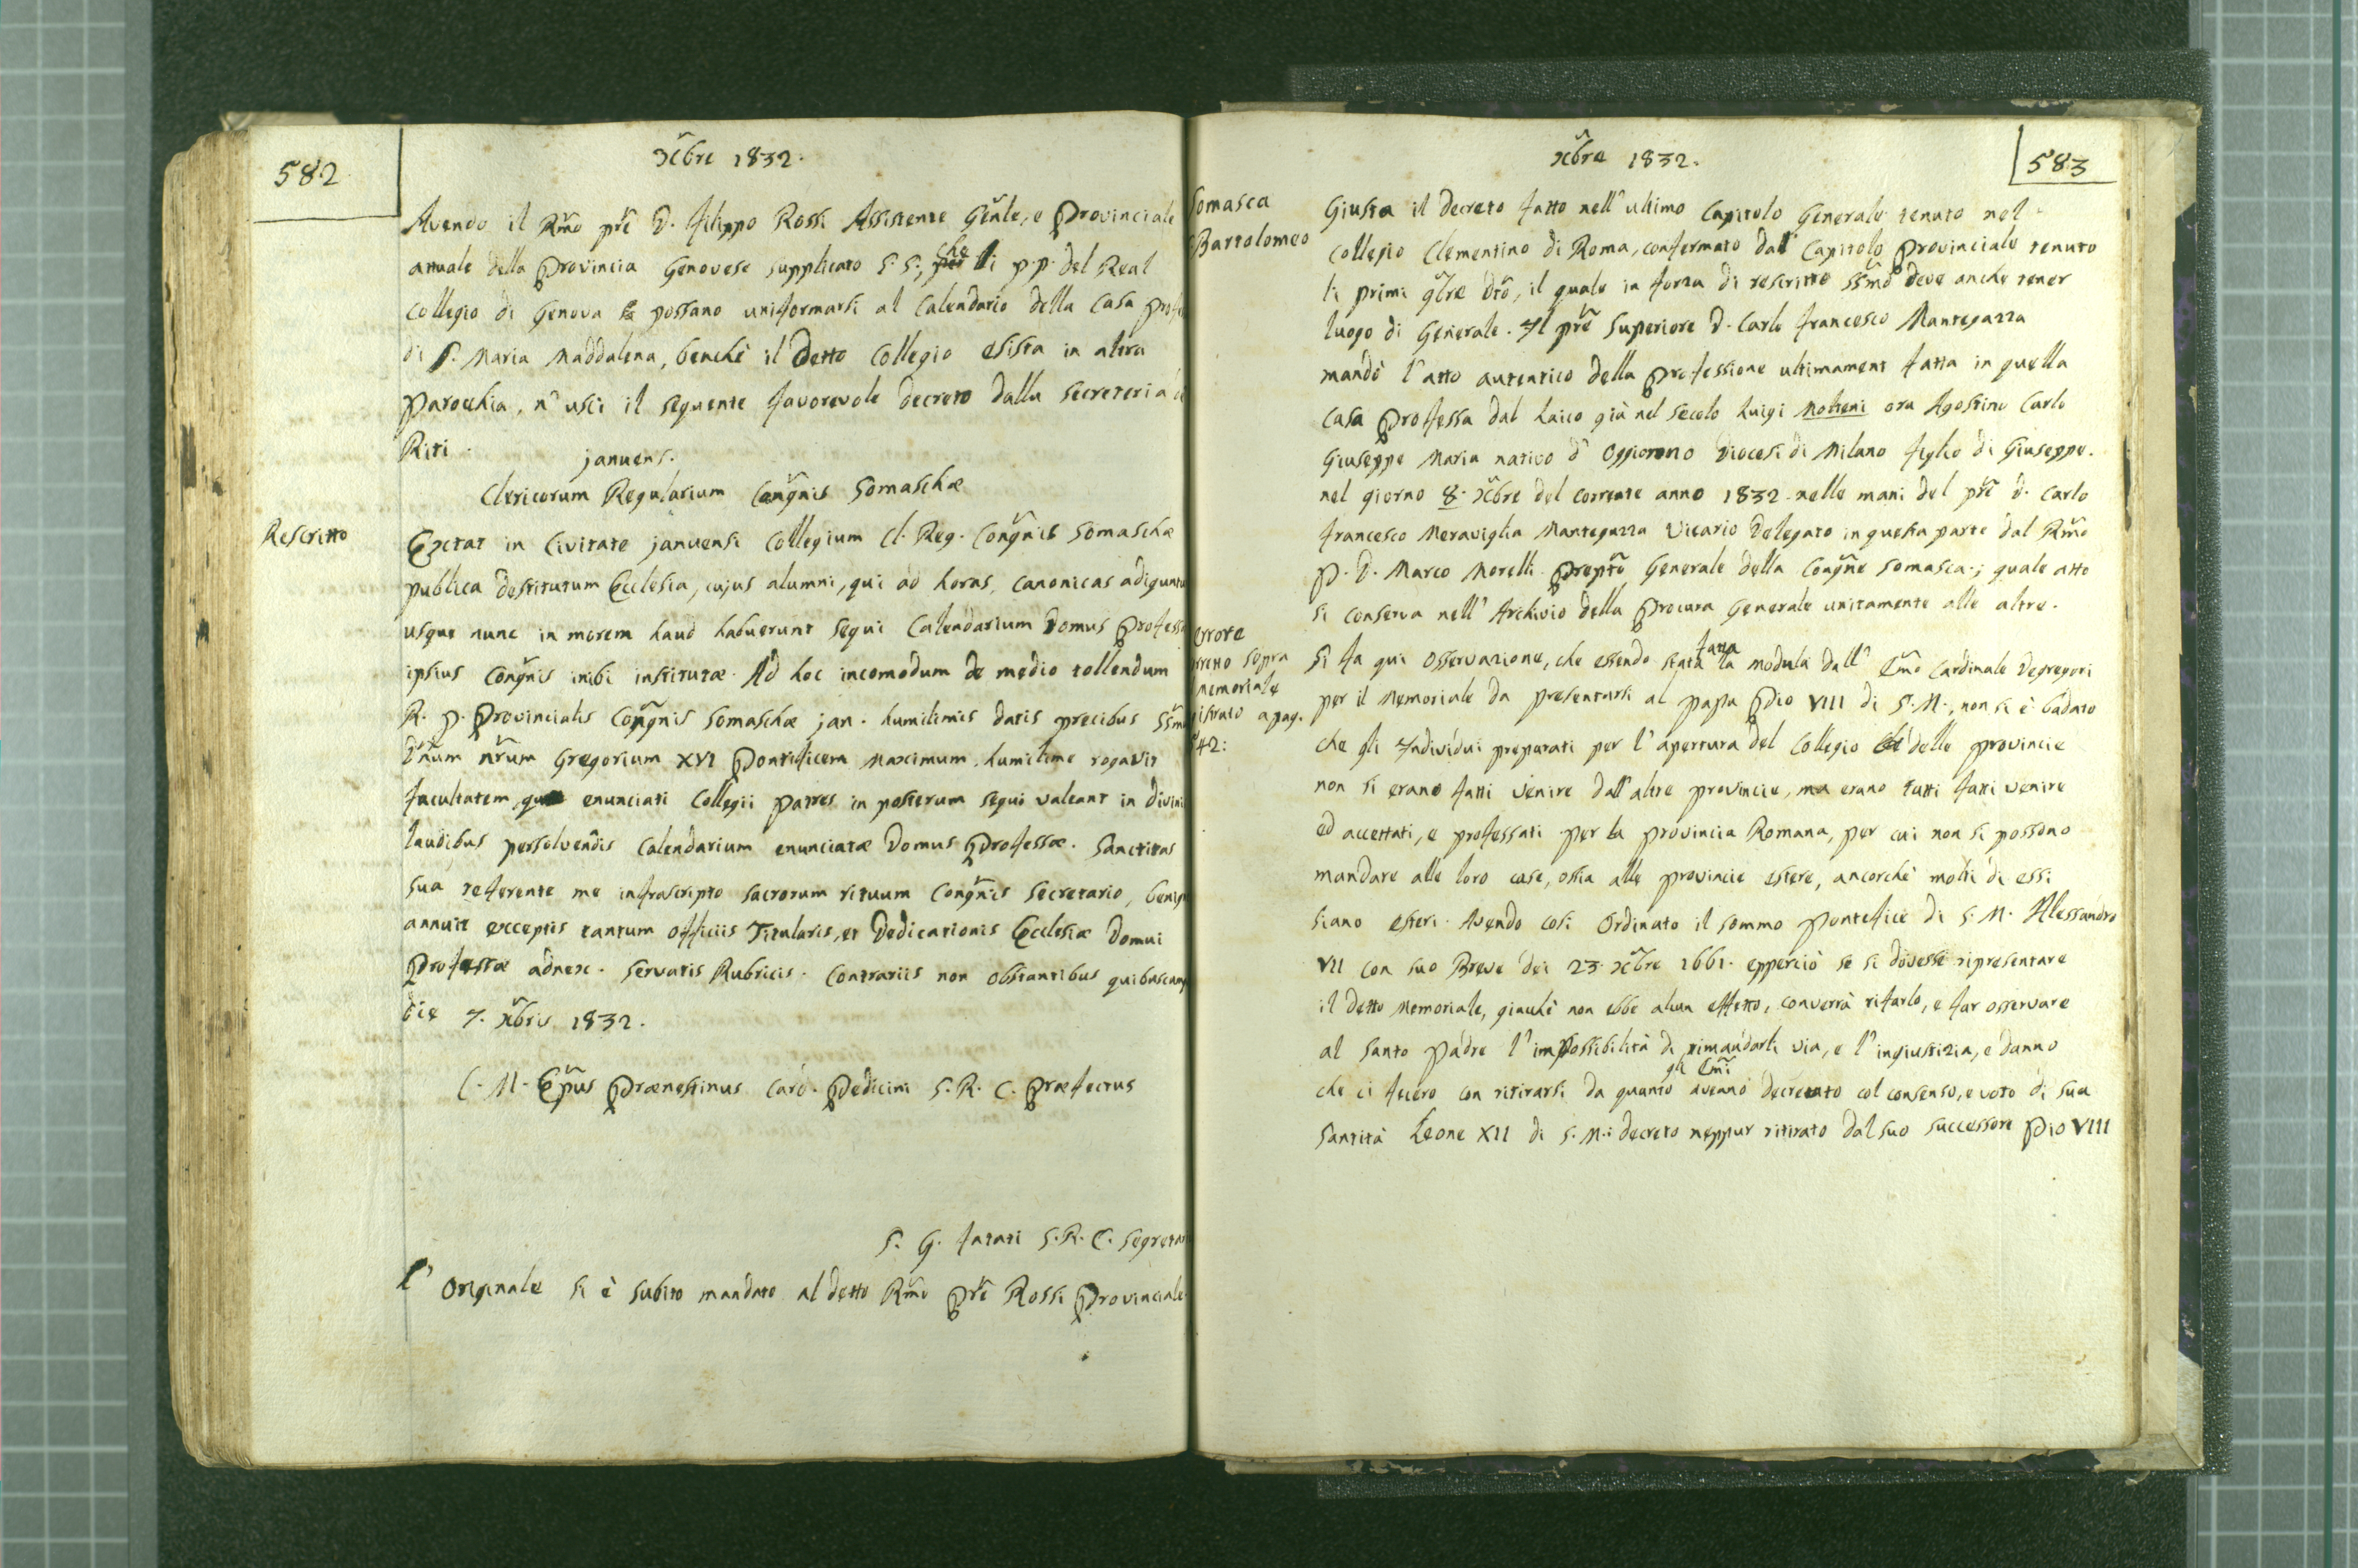 582
Xc̃bre 1832.
Avendo il Rm̃o prẽ D. Filippo Rossi Assistente Gñle, e Provinciale
attuale della Provincia Genovese supplicato S. S.; che li p.p. del Real
Collegio di Genova possano uniformarsi al Calendario della Casa Profe
di S. Maria Maddalena, benchè il Detto Collegio esista in altra
Parochia, n'uscì il seguente favorevole decreto dalla Secreteria d
Riti.
januens.
Clericorum Regularium Congñis Somaschæ
Rescritto
Extat in Civitate januensi Collegium Cl. Reg. Congñis Somaschæ
publica destitutum Ecclesia, cujus alumni, qui ad horas canonicas adiguntu
usque nunc in morem haud habuerunt sequi Calendarium Domus Profess
ipsius Congñis inibi institutæ. Ad hoc incomodum de medio tollendum
R. P. Provincialis Congñis Somaschæ jan. humilimis datis precibus SSm̃
Dñum nr̃um Gregorium XVI Pontificem Maximum humilime rogavit
facultatem, enunciati Collegii Patres in posterum sequi valeant in Divini
laudibus persolvendis Calendarium enunciatæ Domus Professæ. Sanctitas
sua referente me infrascripto sacrorum rituum Congñis Secretario, benign
annuit exceptis tantum officiis Titularis, et Dedicationis Ecclesiæ Domui
Professæ adnex. servatis Rubricis. Contrariis non obstantibus quibuscumq
die 7. Xb̃ris 1832.
C. M. Ep̃us Prænestinus Card. Pedicini S. R. C. Præfectus
S. G. Fatati S. R. C. Segretar
L'Originale si è subito mandato al detto Rm̃o Prẽ Rossi Provinciale
583
Xb̃re 1832.
Somasca
Bartolomeo
Giusta il decreto fatto nell'ultimo Capitolo Generale tenuto nel
Collegio Clementino di Roma, confermato dal Capitolo Provinciale tenuto
li primi 9b̃re dtõ, il quale in forza di rescritto SSm̃o deve anche tener
luogo di Generale. Il prẽ Superiore D. Carlo Francesco Mantegazza
mandò l'atto autentico della Professione ultimament fatta in quella
Casa Professa dal Laico già nel secolo Luigi Molteni ora Agostino Carlo
Giuseppe Maria nativo d'Oggionno Diocesi di Milano figlio di Giuseppe.
nel giorno 8. Xb̃re del corrente anno 1832. nelle mani del prẽ D. Carlo
Francesco Meraviglia Mantegazza Vicario Delegato in questa parte dal Rm̃o
P. D. Marco Morelli Prep̃to Generale della Congñe Somasca.; quale atto
si conserva nell'Archivio della Procura Generale unitamente alle altre.
errore
rretto sopra
memoriale
gistrato a pag.
542:
Si fa qui osservazione, che essendo stata fatta la modula dall' Em̃o Cardinale Degregori
per il Memoriale da presentarsi al Papa Pio VIII di S. M., non si è badato
che gli Individui preparati per l'apertura del Collegio delle provincie
non si erano fatti venire dall'altre provincie, ma erano tutti fatti venire
ed accettati, e professati per la provincia Romana, per cui non si possono
mandare alle loro case, ossia alle provincie estere, ancorchè molti di essi
siano esteri. Avendo così Ordinato il sommo Pontefice di S. M. Alessandro
VII con suo Breve dei 23. Xb̃re 1661. epperciò se si dovesse ripresentare
il detto Memoriale, giacchè non ebbe alcun effetto, converrà rifarlo, e far osservare
al Santo Padre l'impossibilità di rimandarli via, e l'ingiustizia, e danno
che ci fecero con ritirarsi da quanto gli Em̃i aveano decretato col consenso, e voto di sua
Santità Leone XII di S. M.: decreto neppur ritirato dal suo successore Pio VIII